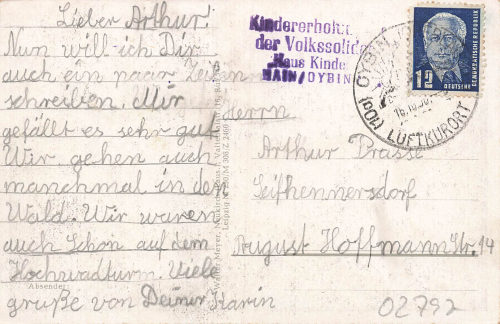 Lieber Arthur!
Nun will ich Dir
auch ein paar Zeilen
schreiben. Mir
gefällt es sehr gut
Wir gehen auch
manchmal in den
Wald. Wir waren
auch Schon auf dem
Hochwadturm. Viele
grüße von Deiner Karin
Absender:
Kindererholu
der Volkssolida
Haus Kinde
HAIN/OYBIN
OYBIN
LUFTKURORT
12
DEUTSCHE DEMOKRATISCHE REPUBLIK
Herrn
Arthur Prasse
Seifhennersdorf
August Hoffmann Str. 14
02792